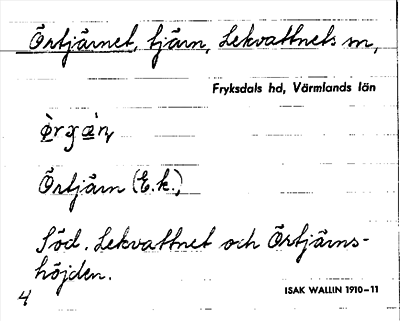 Örtjärnet, tjärn, Lekvattnets sn,
Fryksdals hd, Värmlands län
Örtjärn (E.k.)
Söd. Lekvattnet och Örtjärns-
höjden.
4
ISAK WALLIN 1910-11